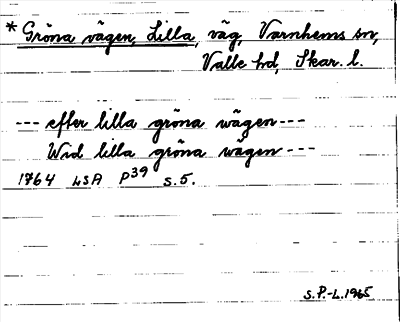 * Gröna vägen, Lilla, väg, Varnhems sn,
Valle hd, Skar. l.
--- efter lilla gröna wägen ---
Wid lilla gröna wägen ---
1764 LSA P39 s. 5.
S.P.-L. 1965